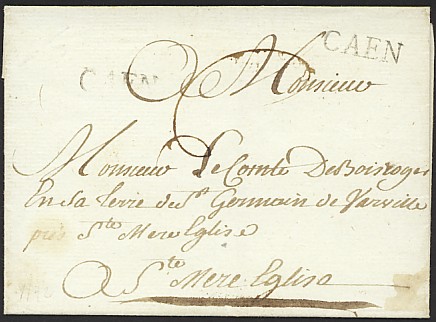 CAEN
CAEN
Monsieur
Monsieur Le Comte De Boisroger
En Sa terre de St Germain de Varville
près Ste Mere Eglise
A Ste Mere Eglise